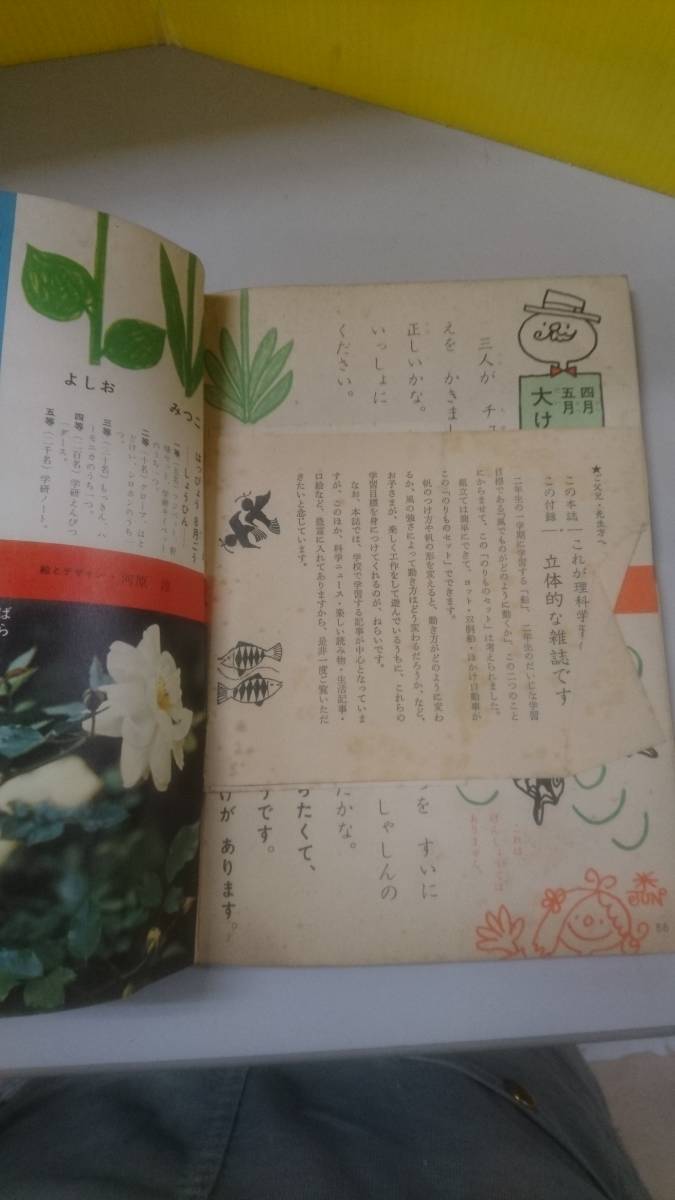 四月
五月
大け
三人が チ
えを かきまし
正しいかな。
いっしょに
ください。
★ご父兄・先生方へ
この本誌
この付録
これが理科学
立体的な雑誌です
二年生の一学期に学習する「船」、二年生のだいじな学習
目標である「風でものがどのように動くか」、この二つのこと
にからませて、この「のりものセット」は考えられました。
組立ては簡単にできて、ヨット・双胴船・ほかけ自動車が
この「のりものセット」でできます。
帆のつけ方や帆の形を変えると、動き方がどのように変わ
るか、風の強さによって動き方はどう変わるだろうか、など、
お子さまが、楽しく工作をして遊んでいるうちに、これらの
学習目標を身につけてくれるのが、ねらいです。
なお、本誌では、学校で学習する記事が中心となっていま
すが、このほか、科学ニュース・楽しい読み物・生活記事・
口絵など、豊富に入れてありますから、是非一度ご覧いただ
きたいと念じています。
を すいに
しゃしんの
たかな。
ったくて、
うです。
けが あります。
これは、
けんしょうでは
ありません。
JUN
66
みつこ
よしお
はっぴょう 8月ごう
しょうひん
二等(十名)グローブ、はと
どけい、シロホンのうち一
つ。
三等(三十名)もっきん、ハ
ーモニカのうち一つ。
四等(二百名)学研えんぴつ
一ダース。
五等(二千名)学研ノート。
絵とデザイン・河原 淳
ば
ら